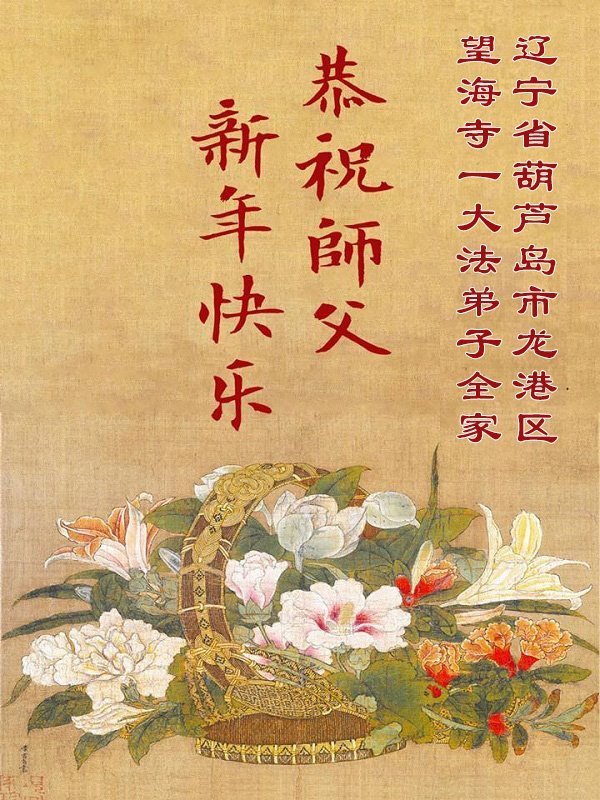 辽宁省葫芦岛市龙港区
望海寺一大法弟子全家
恭祝師父
新年快乐